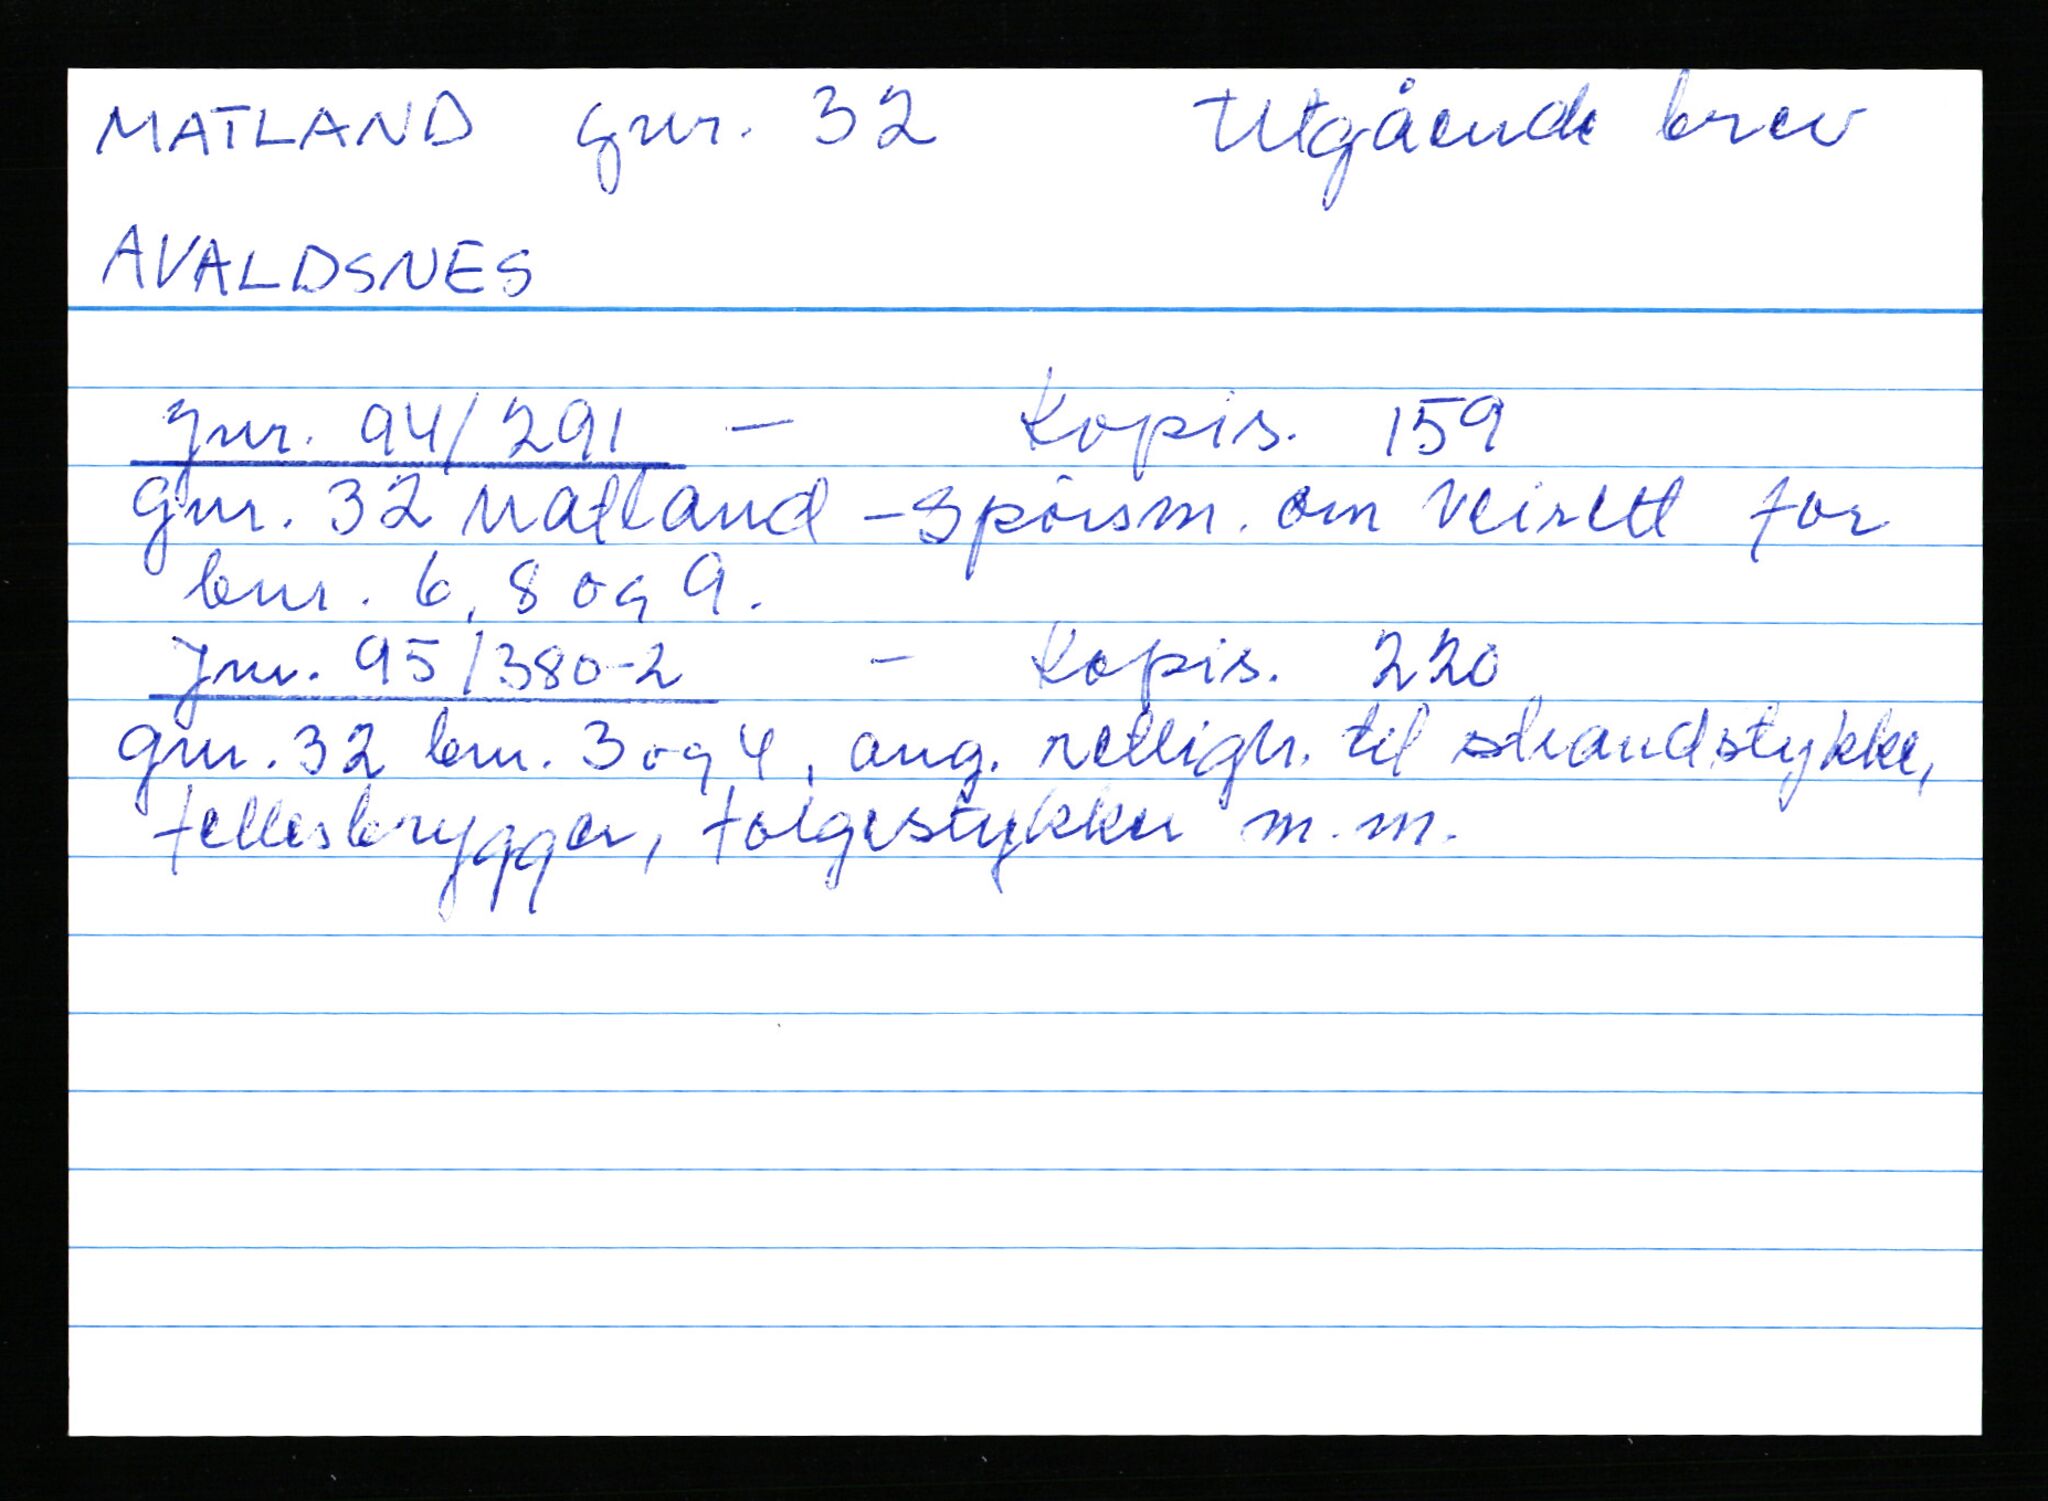 MATLAND gnr. 32 Utgående brev
AVALDSNES
Jnr. 94/291 — Kopis. 159
Gnr. 32 Matland - Spørsm. om veirett for
bnr. 6, 8 og 9.
Jnr. 95/380-2 - Kopis. 220
gnr. 32 bnr. 3 og 4, ang. rettigh. til strandstykke,
fellesbrygger, følgestykker m.m.